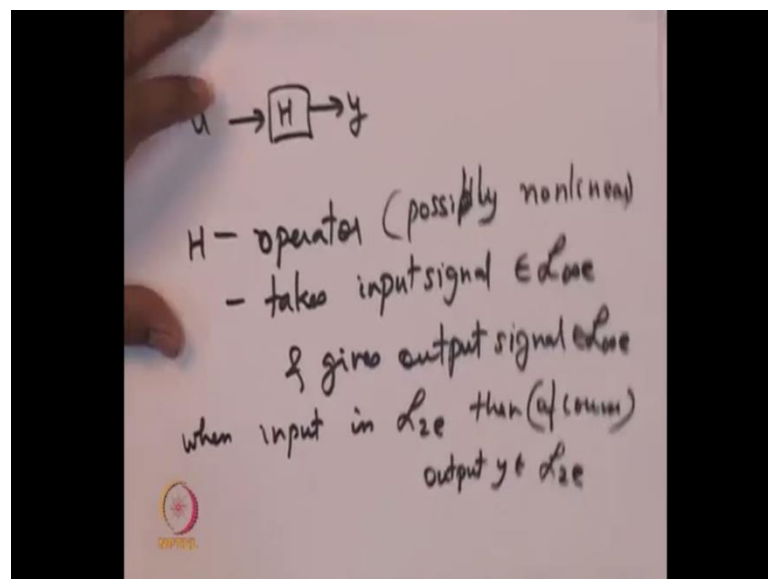 u → H → y
H - operator (possibly nonlinear)
- takes input signal ∈ ℒ∞e
& gives output signal ∈ ℒ∞e
when input in ℒ2e then (of course)
output y ∈ ℒ2e
NPTEL